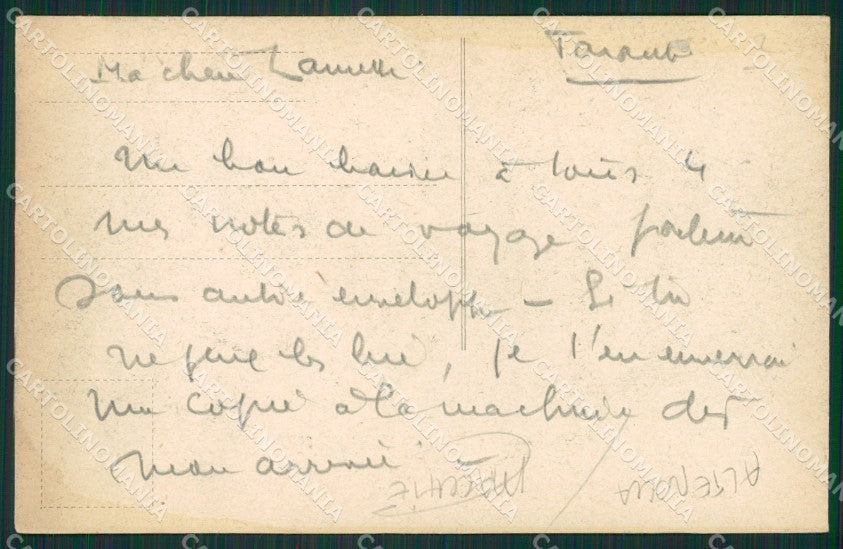 Taranto
Ma chère
Un bon baiser à tous 4
mes notes de voyage partent
sous autre enveloppe - Si tu
ne peux les lire, je t'en enverrai
une copie à la machine dès
mon arrivée -
CARTOLINOMANIA